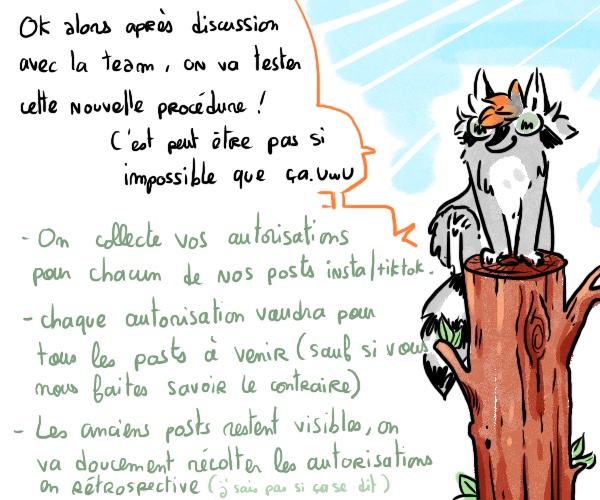 Ok alors après discussion
avec la team, on va tester
cette nouvelle procédure !
C'est peut être pas si
impossible que ça. UwU
- On collecte vos autorisations
pour chacun de nos posts insta/tiktok.
- chaque autorisation vaudra pour
tous les posts à venir (sauf si vous
nous faites savoir le contraire)
- Les anciens posts restent visibles, on
va doucement récolter les autorisations
en rétrospective (j'sais pas si ça se dit)